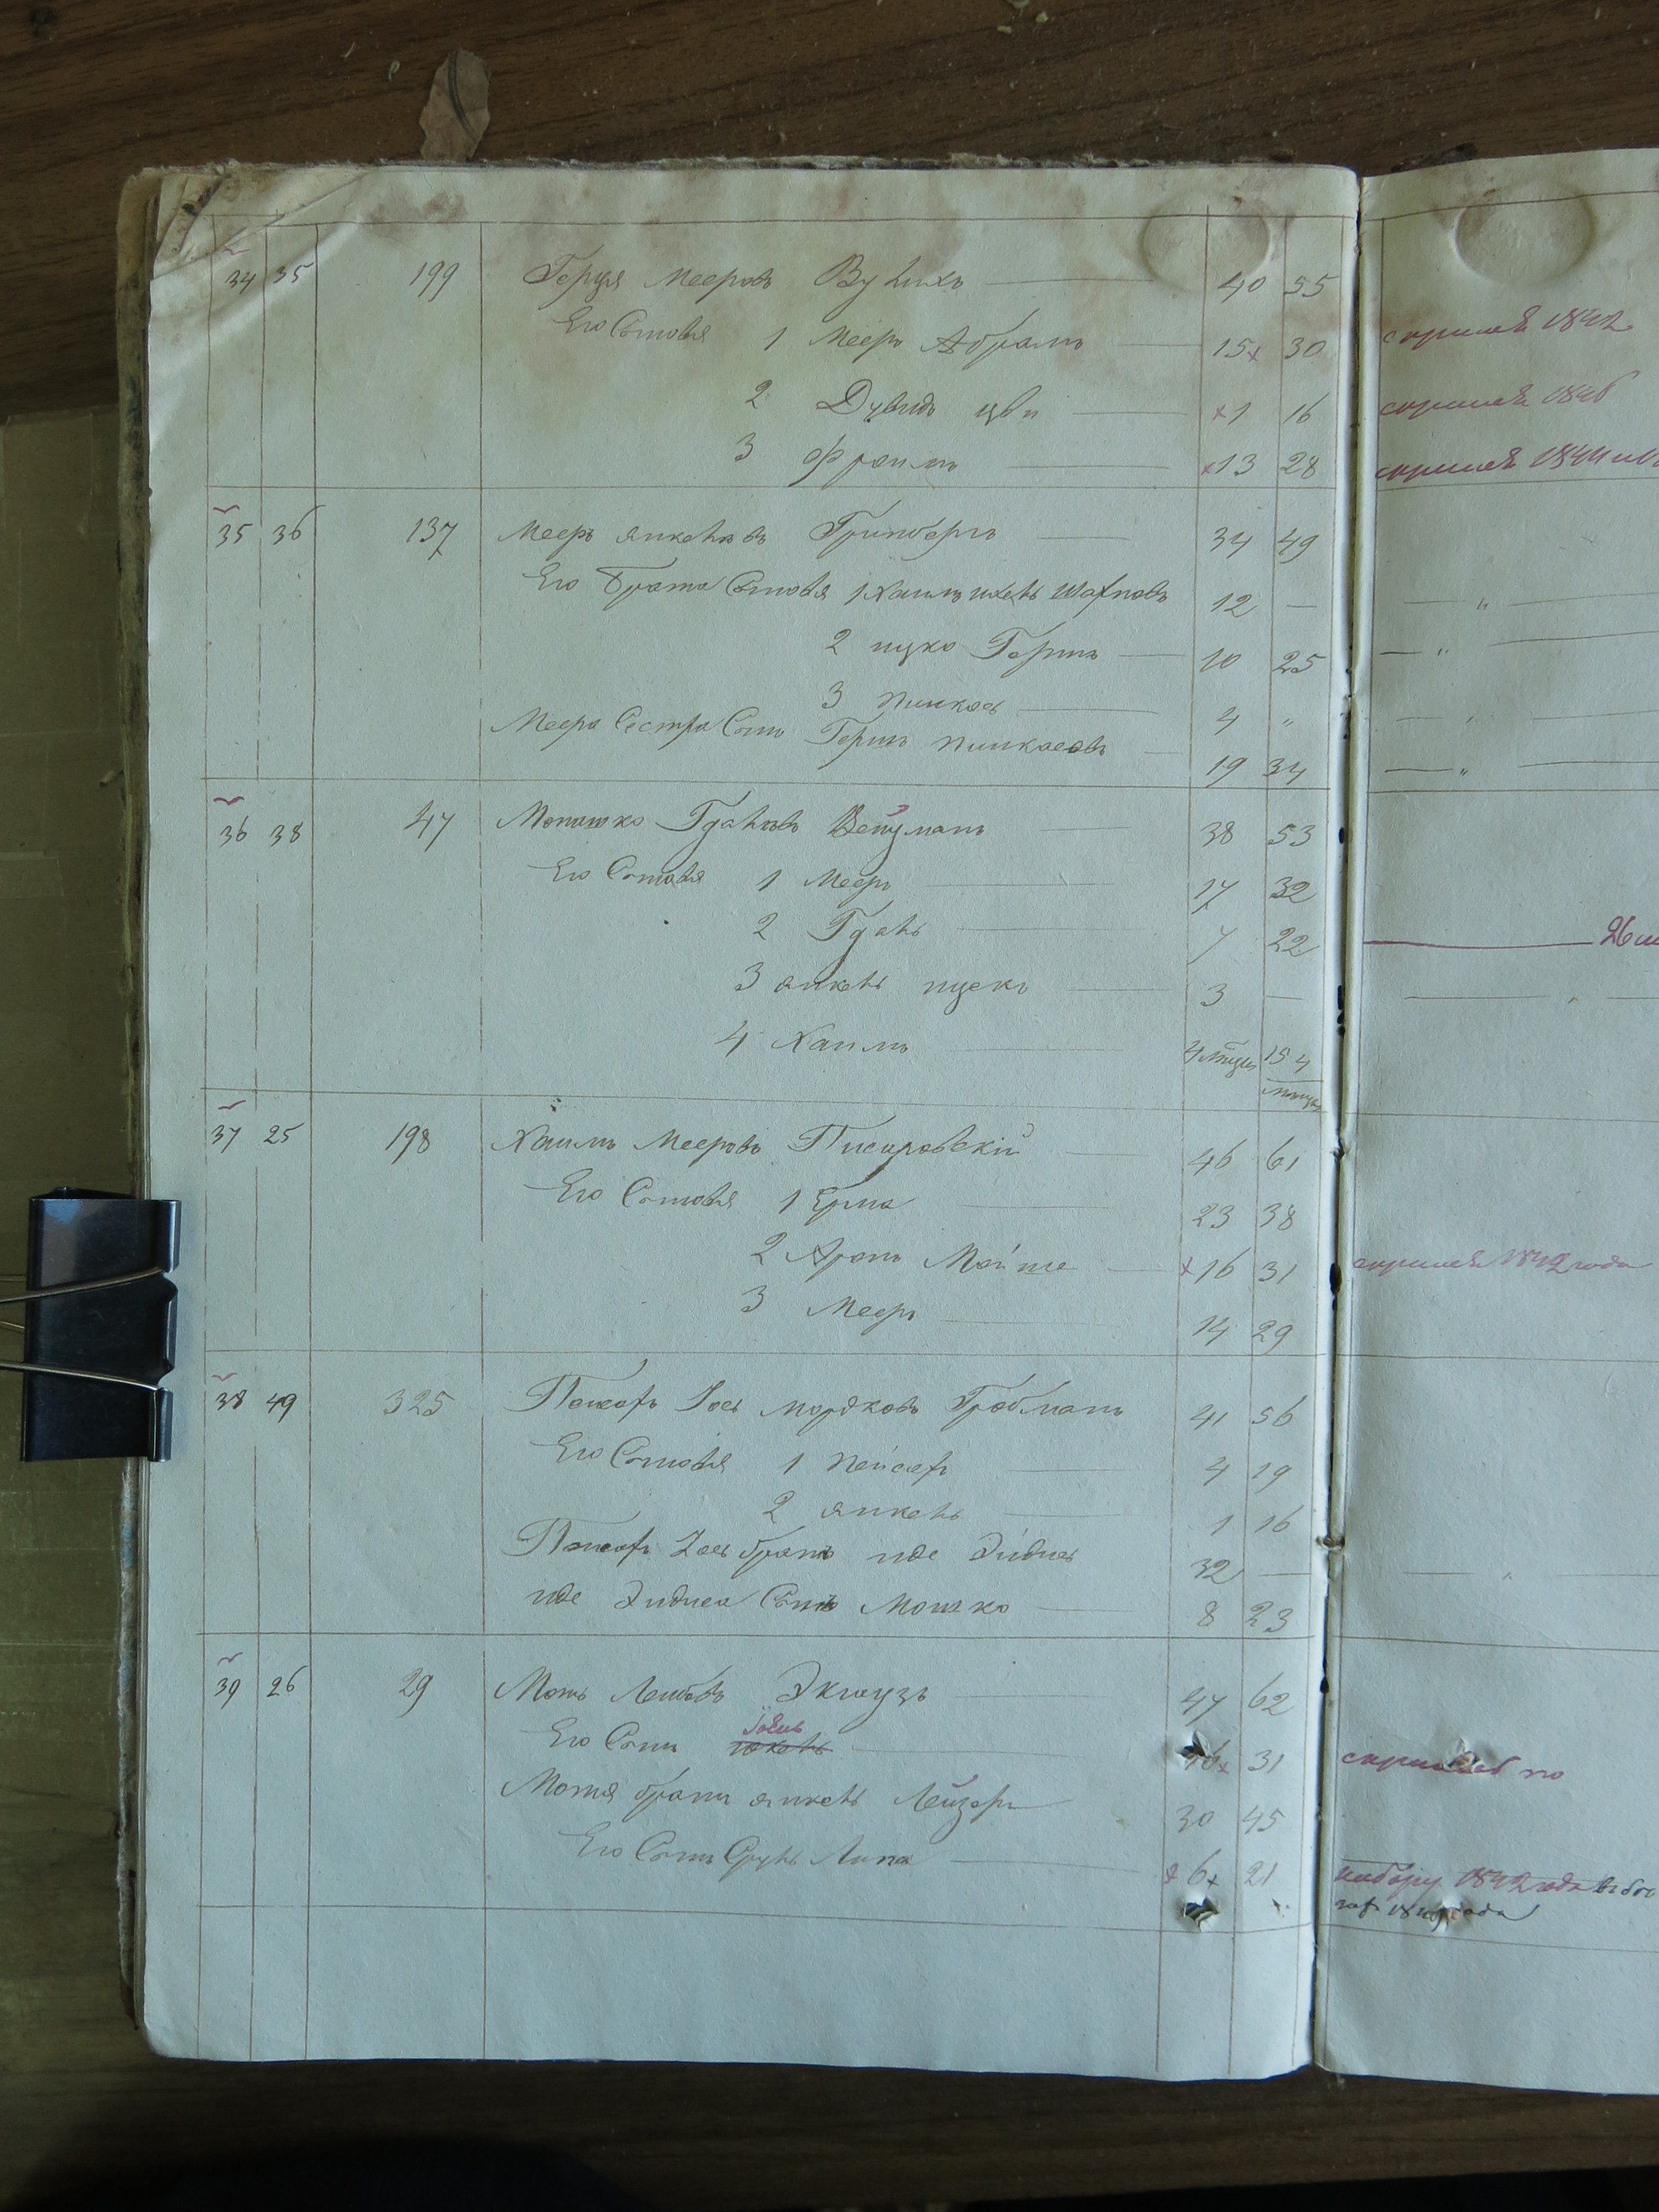 34 35 199 Герця Мееровъ Вулихъ 40 55
Его Сыновья 1 Мееръ Абрамъ 15 x 30 скрылся 1842
2 Дувидъ цви x 1 16 скрылся 1846
3 Фроимъ x 13 28 скрылся 1844
35 36 137 Мееръ янкелевъ Гринбергъ 34 49
Его Брата Сыновья 1 Хаимъ Шахновъ 12 — — „ —
2 ицко Гершъ 10 25 — „ —
3 Пинкасъ 4 „ — „ —
Меера Сестра Сынъ Гершъ Пинкасовъ 19 34 — „ —
36 38 47 Монашко Вейцманъ 38 53
Его Сыновья 1 Мееръ 17 32
2 7 22 26
3 янкель ицекъ 3 — — „ —
4 Хаимъ 4 15 4
37 25 198 Хаимъ Мееровъ 46 61
Его Сыновья 1 Ерма 23 38
2 Аронъ Мойше x 16 31 скрылся 1842 года
3 Мееръ 14 29
38 49 325 Пейсахъ Іось мордковъ Гробманъ 41 56
Его Сыновья 1 Пейсахъ 4 19
2 янкель 1 16
Пейсахъ Іось братъ иде Зидель 32 — — „
иде Сынъ Мошко 8 23
39 26 29 Моть Лейбовъ 47 62
Іовль
Его Сынъ 16 x 31 скрылся по
Мотя братъ янкель Лейзеръ 30 45
Его Сынъ Сруль Липа x 6 x 21 набору 1842 года
года